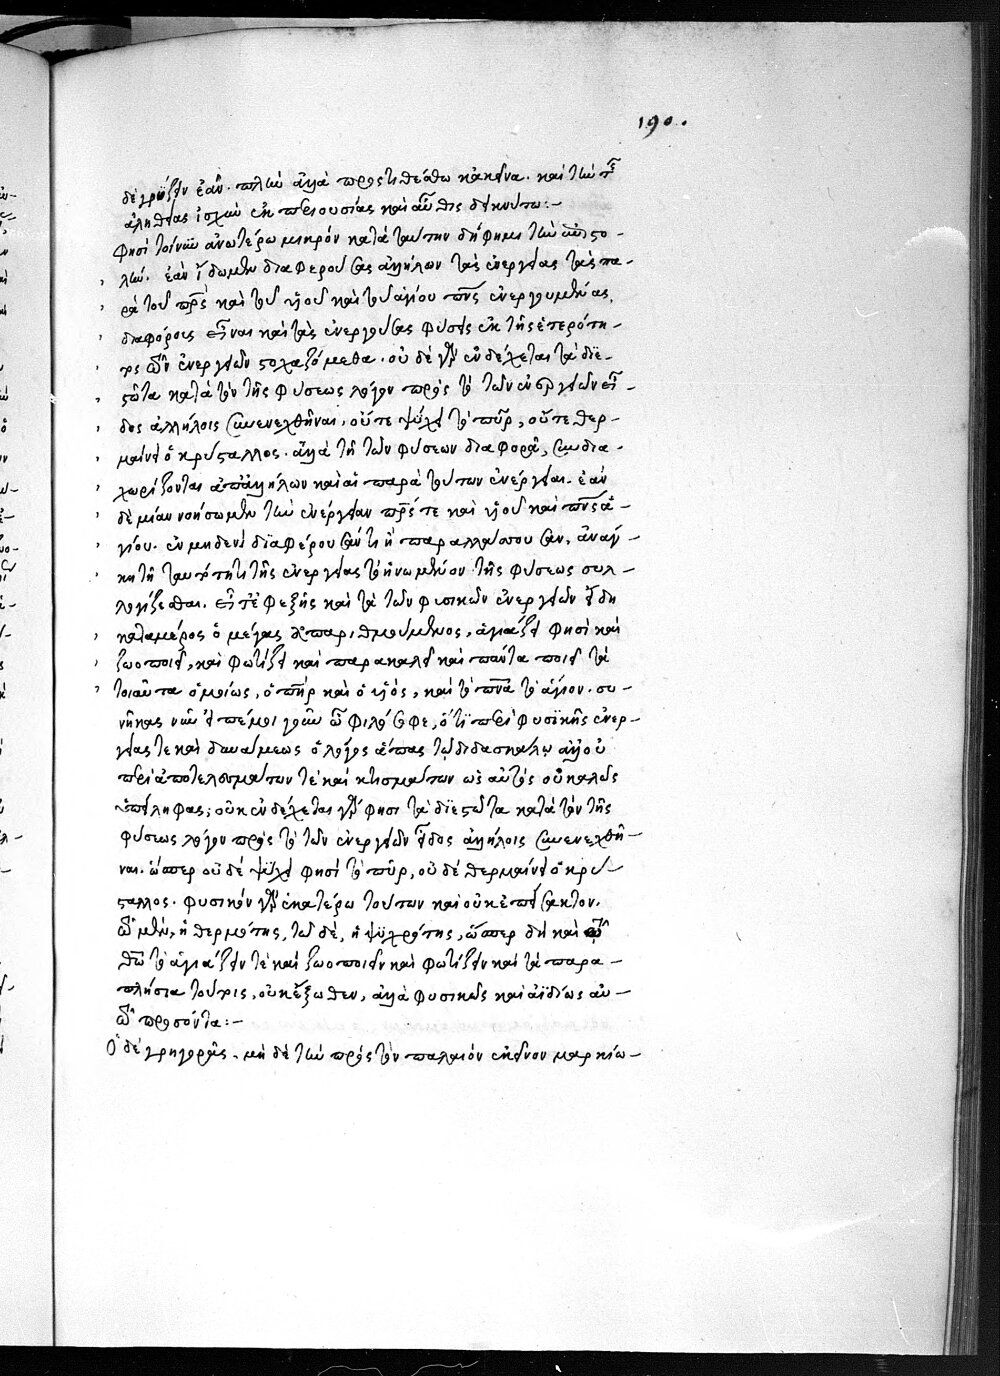 190.
δὲ γρύζειν ἐᾶν. πλὴν ἀλλὰ προςτιθέσθω κἀκεῖνα. καὶ τὴν τῆς
ἀληθείας ἰσχὺν ἐκ περιουσίας καὶ αὖθις δεικνύτω:-
Φησὶ τοίνυν ἀνωτέρω μικρὸν κατὰ ταύτην δή φημι τὴν ἐπιστο-
λήν. ἐὰν ἴδωμεν διαφερούσας ἀλλήλων τὰς ἐνεργείας τὰς πα-
ρὰ τοῦ πρς καὶ τοῦ υἱοῦ καὶ τοῦ ἁγίου πνς ἐνεργουμένας,
διαφόρους εἶναι καὶ τὰς ἐνεργούσας φύσεις ἐκ τῆς ἑτερότη-
τος τῶν ἐνεργειῶν στοχαζόμεθα. οὐδὲ γὰρ ἐνδέχεται τὰ διε-
στῶτα κατὰ τὸν τῆς φύσεως λόγον πρὸς τὸ τῶν ἐνεργειῶν εἶ-
δος ἀλλήλοις συνενεχθῆναι. οὔτε ψύχει τὸ πῦρ, οὔτε θερ-
μαίνει ὁ κρύσταλλος. ἀλλὰ τῇ τῶν φύσεων διαφορᾷ, συνδια-
χωρίζονται ἀπἀλλήλων καὶ αἱ παρὰ τούτων ἐνέργειαι. ἐὰν
δὲ μίαν νοήσωμεν τὴν ἐνέργειαν πρς τε καὶ υἱοῦ καὶ πνς ἁ-
γίου. ἐν μηδενὶ διαφέρουσάν τι ἢ παραλλάττουσαν, ἀνάγ-
κη τῇ ταυτότητι τῆς ἐνεργείας τὸ ἡνωμένον τῆς φύσεως συλ-
λογίζεσθαι. εἶτ' ἐφεξῆς καὶ τὰ τῶν φυσικῶν ἐνεργειῶν εἴδη
καταμέρος ὁ μέγας ἀπαριθμούμενος, ἁγιάζει φησὶ καὶ
ζωοποιεῖ, καὶ φωτίζει καὶ παρακαλεῖ καὶ πάντα ποιεῖ τὰ
τοιαῦτα ὁμοίως, ὁ πηρ καὶ ὁ υἱός, καὶ τὸ πνα τὸ ἅγιον. συ-
νῆκας νῦν εἰπέ μοι γοῦν ὦ φιλόσοφε, ὅτι περὶ φυσικῆς ἐνερ-
γείας τε καὶ δυνάμεως ὁ λόγος ἅπας τῷ διδασκάλῳ ἀλλ' οὐ
περὶ ἀποτελεσμάτων τε καὶ κτισμάτων ὡς αὐτὸς οὐ καλῶς
ὑπείληφας; οὐκ ἐνδέχεται γάρ φησι τὰ διεστῶτα κατὰ τὸν τῆς
φύσεως λόγον πρὸς τὸ τῶν ἐνεργειῶν εἶδος ἀλλήλοις συνενεχθῆ-
ναι. ὥσπερ οὐδὲ ψύχει φησὶ τὸ πῦρ, οὐδὲ θερμαίνει ὁ κρύ-
σταλλος. φυσικὸν γὰρ ἑκατέρω τούτων καὶ οὐκ ἐπείσακτον.
τῷ μὲν, ἡ θερμότης, τῷ δὲ, ἡ ψυχρότης, ὥσπερ δὴ καὶ τῷ
θῶ τὸ ἁγιάζειν τὲ καὶ ζωοποιεῖν καὶ φωτίζειν καὶ τὰ παρα-
πλήσια τούτοις, οὐκ ἔξωθεν, ἀλλὰ φυσικῶς καὶ ἀϊδίως αὐ-
τῷ προσόντα:-
Ὁ δὲ γρηγορᾶς. μηδὲ τὴν πρὸς τὸν παλαιὸν ἐκεῖνον μαρκίω-